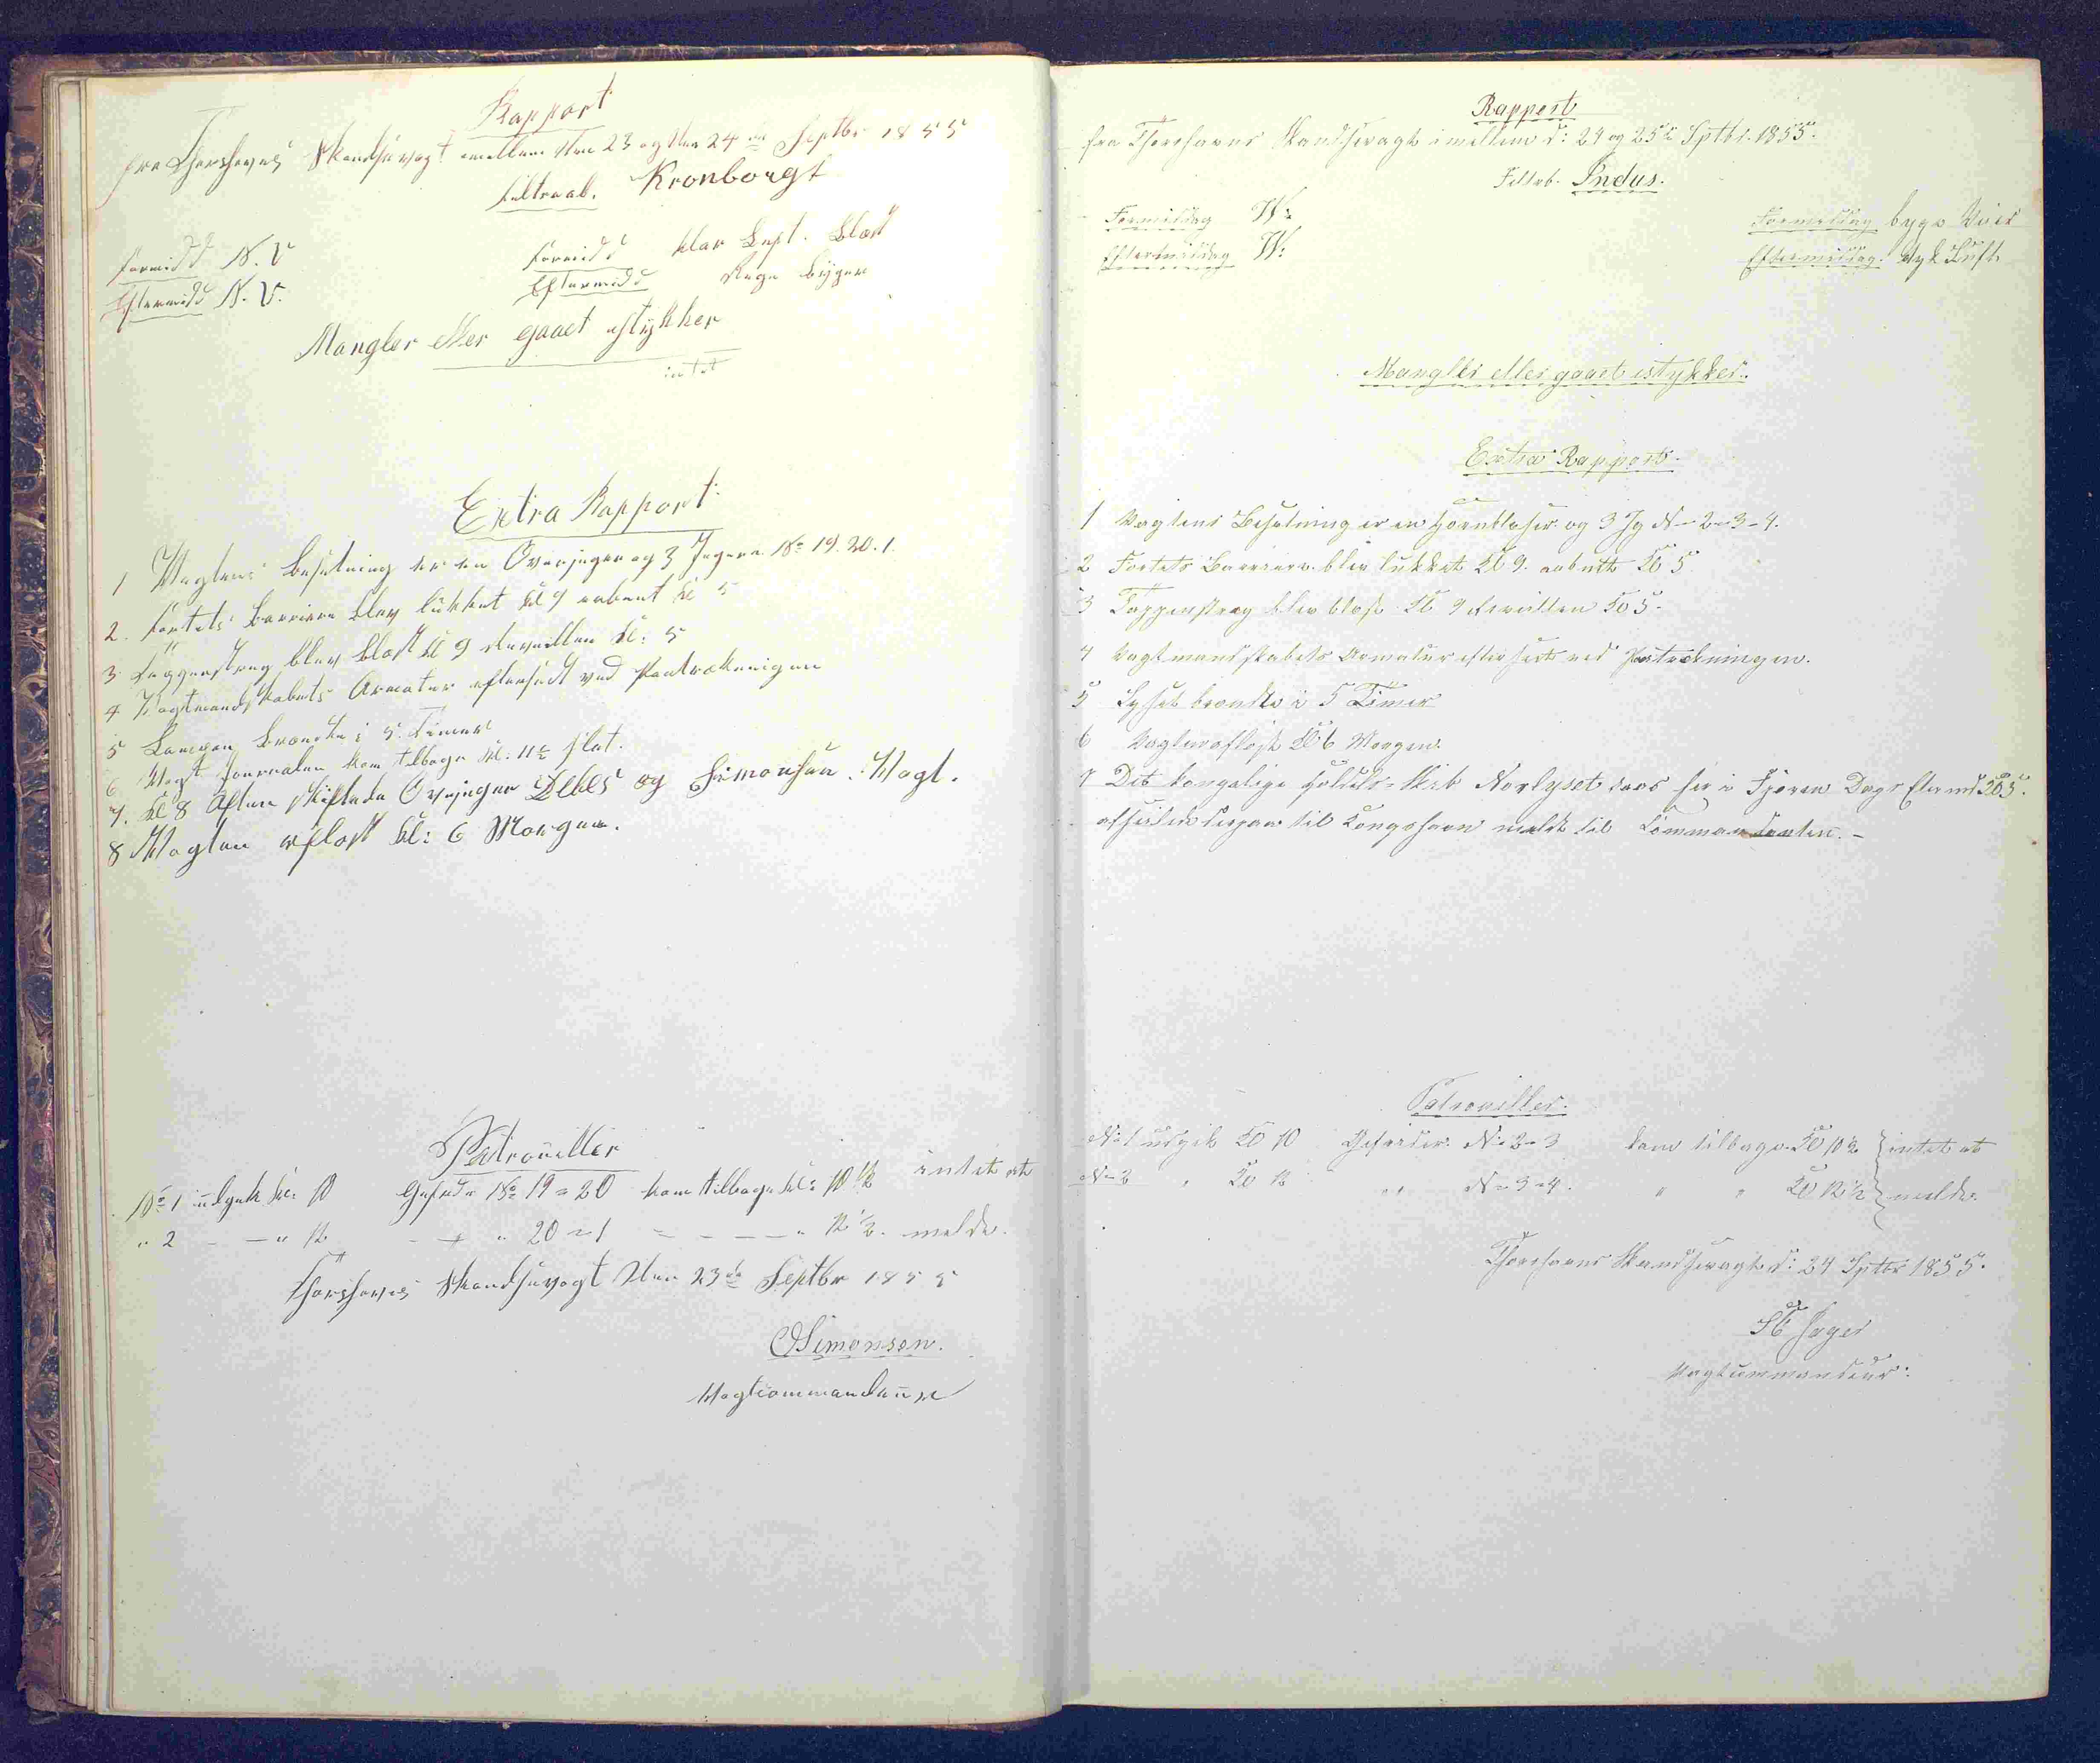 Rapport
fra Thorshavns Skandsevagt imellem den 23 og den 24de Septbr 1855
Feltraab. Kronborgt
Formidd N. V Formidd klar Luft. Blæst
Eftermidd N. V. Eftermidd Regn Byger
Mangler eller gaaet istykker
intet
Extra Rapport
1 Vagtens Besætning er en Overjæger og 3 Jægere No 19. 20. 1.
2. Fortets Barriere blev lukket Kl 9 aabnet Kl 5
3 Tappenstreg blev blæst Kl 9 Reveillen Kl: 5
4 Vagtmandskabets Armatur efterseet ved Fratrækningen
5 Lampen brændte i 5. Timer
6 Vagt Journalen kom tilbage Kl. 11½ slet.
7. Kl 8 Aften skiftede Overjæger Debes og Simonsen Vagt.
8 Vagten afløst Kl: 6 Morgen.
Patrouiller
No 1 udgik Kl: 10 Gefrider No 19 = 20 kom tilbage Kl: 10 1/2 intet at
" 2 - - " 12 - - " 20 = 1 - - - - " 12 1/2. melde.
Thorshavns Skandsevagt den 23de Septbr 1855
Simonsen.
Vagtcommandeur
Rapport
fra Thorshavns Skandsevagt imellem d: 24 og 25de Sptbr. 1855.
Feltrb. Indus.
Formiddag W: Formiddag byge Veir
Eftermiddag W: Eftermiddag. tyk Luft.
Mangler eller gaaet istykker.
Extra Rapport.
1 Vagtens Besætning er en Hornblæser og 3 Jg N= 2=3=4.
2 Fortets Barriere blev lukket Kl 9. aabnet Kl 5
3 Tappenstreg blev blæst Kl 9 Revillen Kl 5.
4 Vagtmandskabets Armatur efterseet ved Fratrækningen.
5 Lyset brændte i 5 Timer
6 Vagten afløst Kl 6 Morgen.
7 Det kongelige Skib Norlyset her i Fjoren Dags Efterm Kl 5.
til Kongshavn meldt til Commandanten. -
Patrouiller.
N= 1 udgik Kl 10 Gefrider. N= 2=3 kom tilbage. Kl 10½ } intet at
N= 2 " Kl 12 " " N= 3=4. " " Kl 12½ } melde.
Thorshavns Skandsevagt d: 24 Sptbr 1855.
Jæger
Vagtcommandeur.